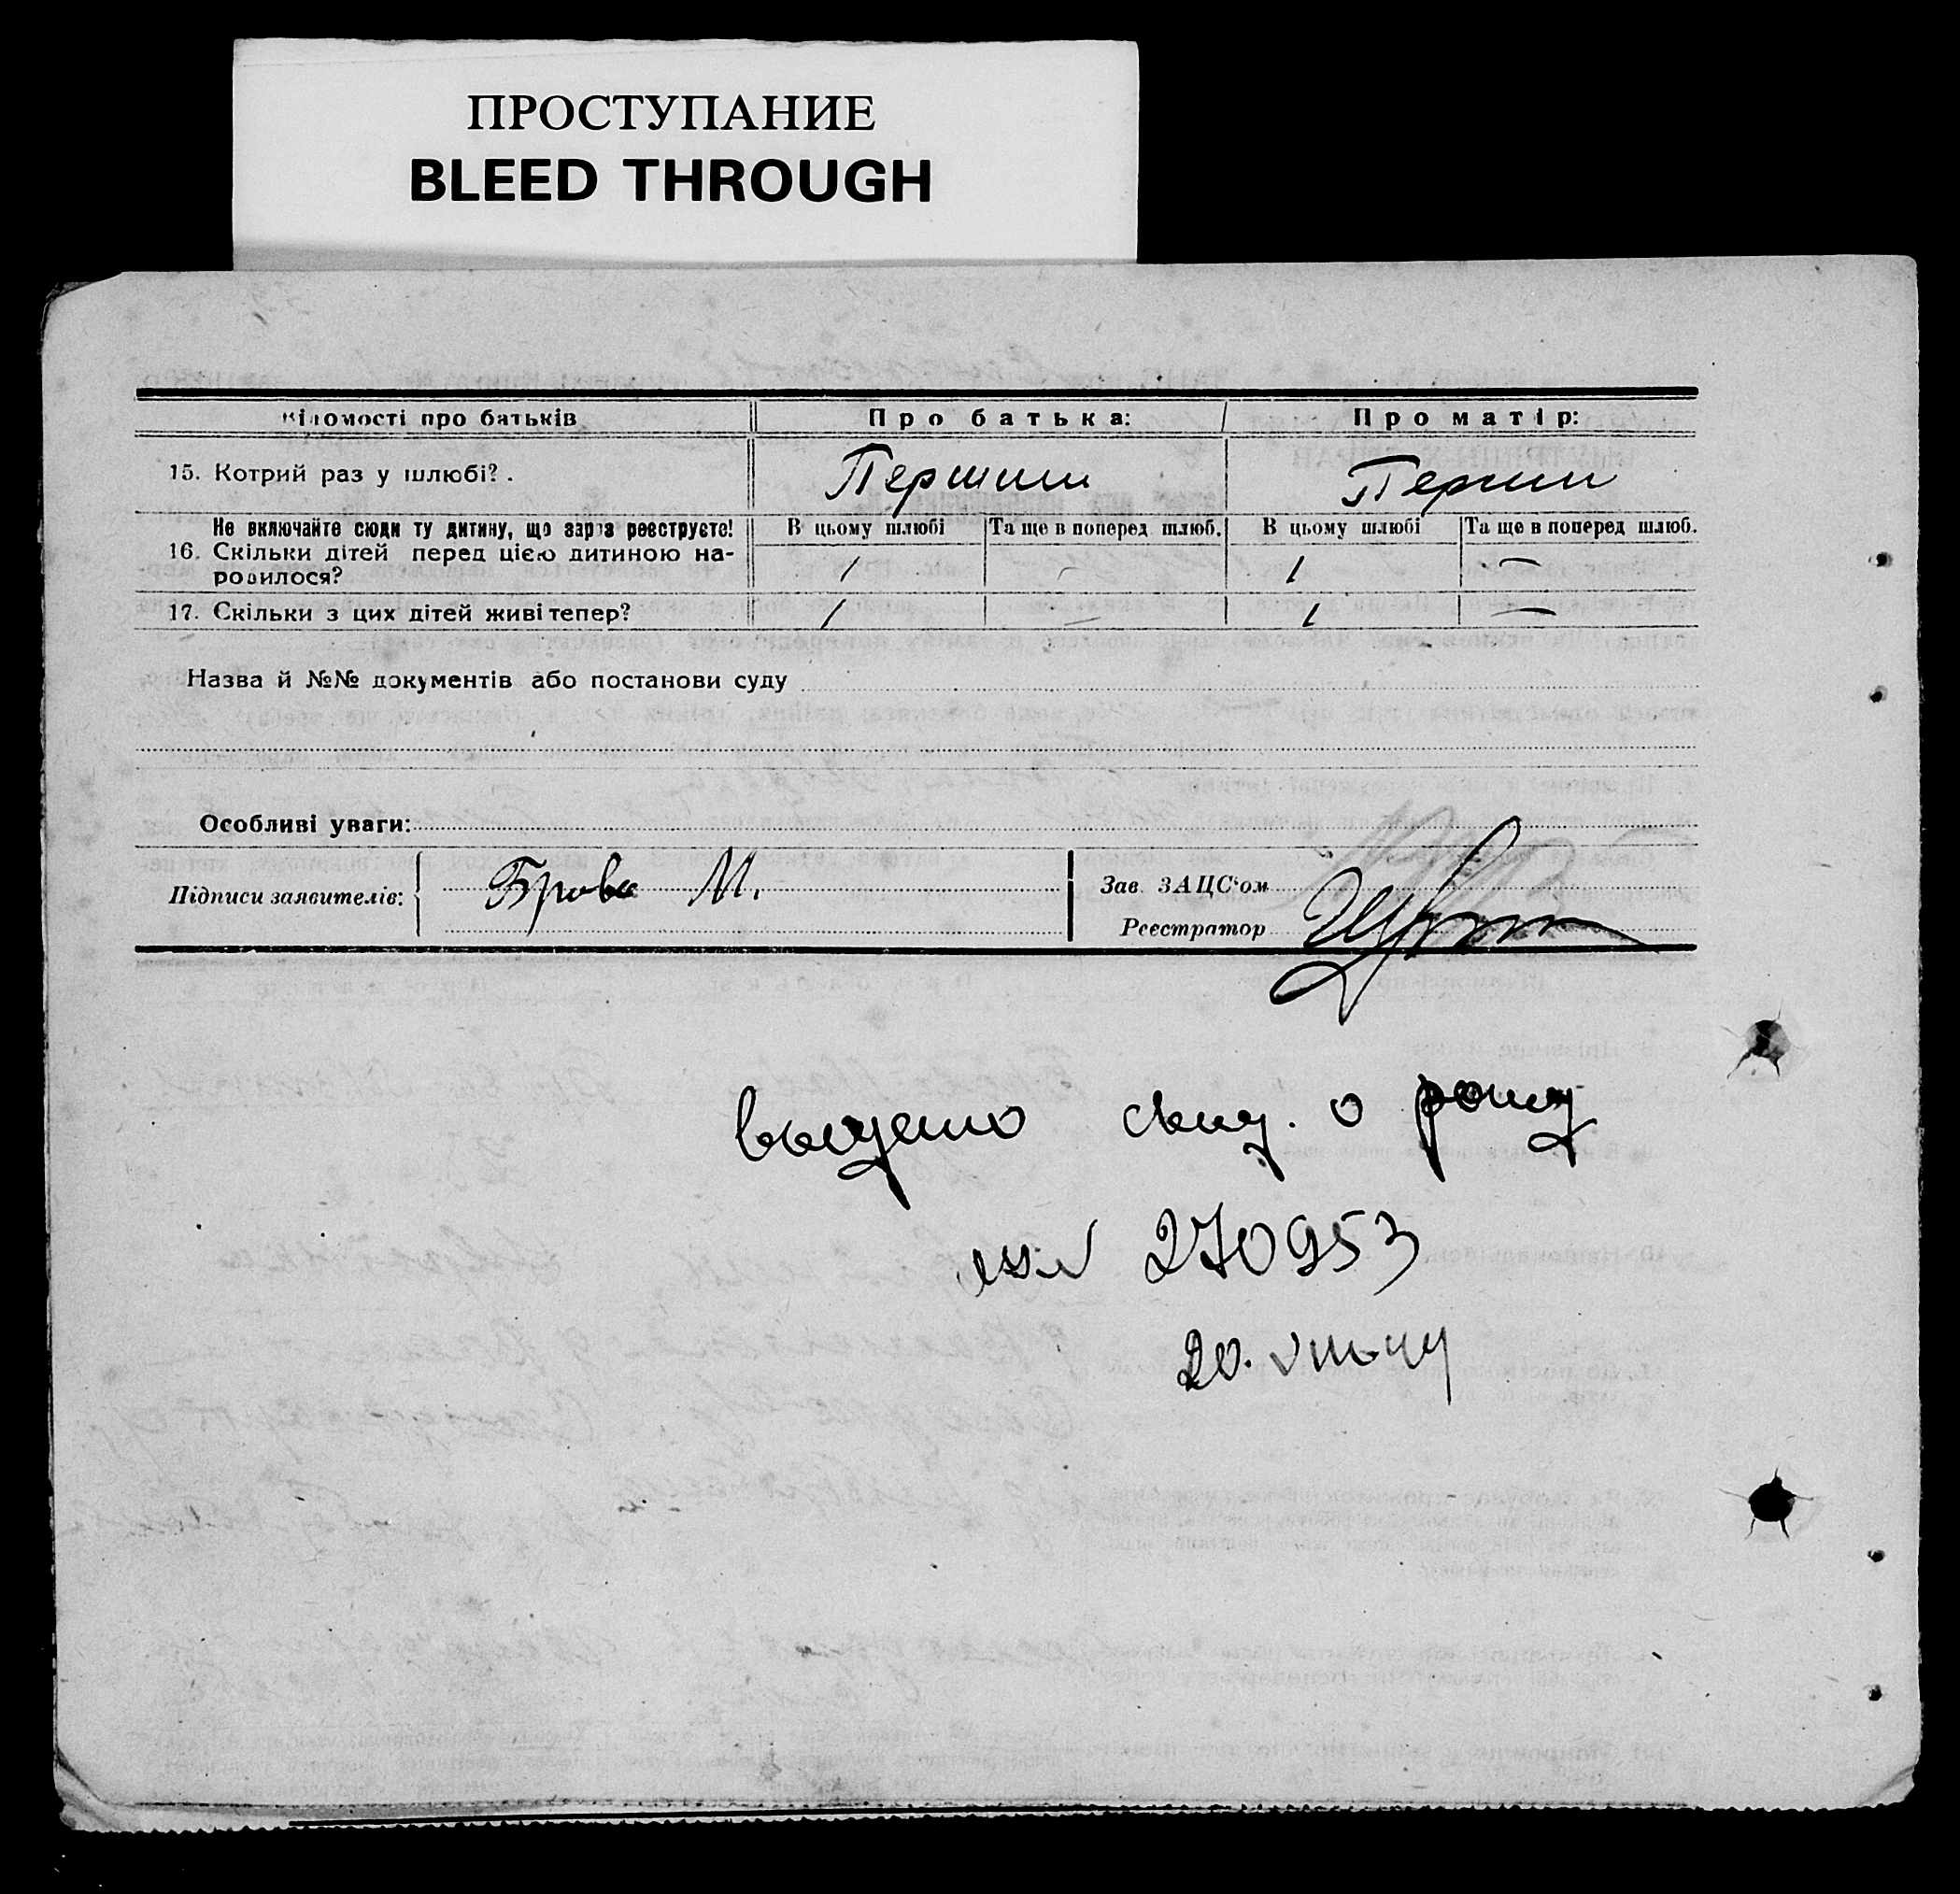 ПРОСТУПАНИЕ
BLEED THROUGH
Відомості про батьків
Про батька:
Про матір:
15. Котрий раз у шлюбі?.
Першии
Перши
Не включайте сюди ту дитину, що зараз реєструєте!
В цьому шлюбі
Та ще в поперед шлюб.
В цьому шлюбі
Та ще в поперед шлюб.
16. Скільки дітей перед цією дитиною на-
родилося?
1
—
1
—
17. Скільки з цих дітей живі тепер?
1
—
1
—
Назва й №№ документів або постанови суду
Особливі уваги:
Підписи заявителів:
М.
Зав ЗАЦС'ом
Реєстратор
о
270953
20.